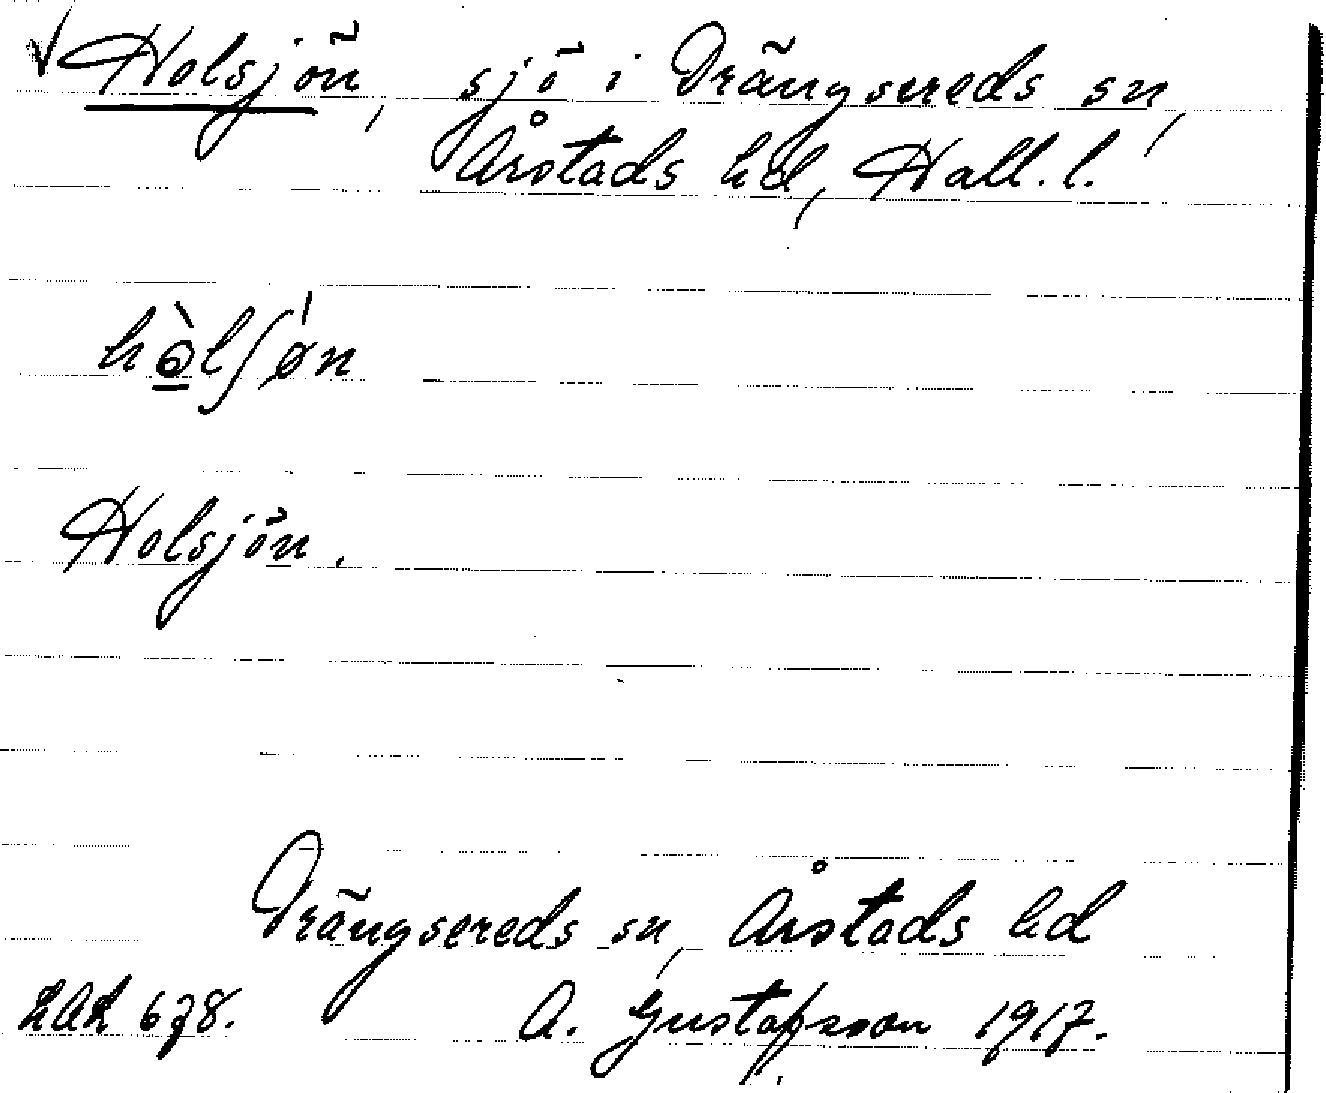 √ Holsjön, sjö i Drängsereds sn,
Årstads hd, Hall. l.
hò̲lʃø̍n
Holsjön.
Drängsereds sn, Årstads hd
LAL 678. A. Gustafsson 1917.